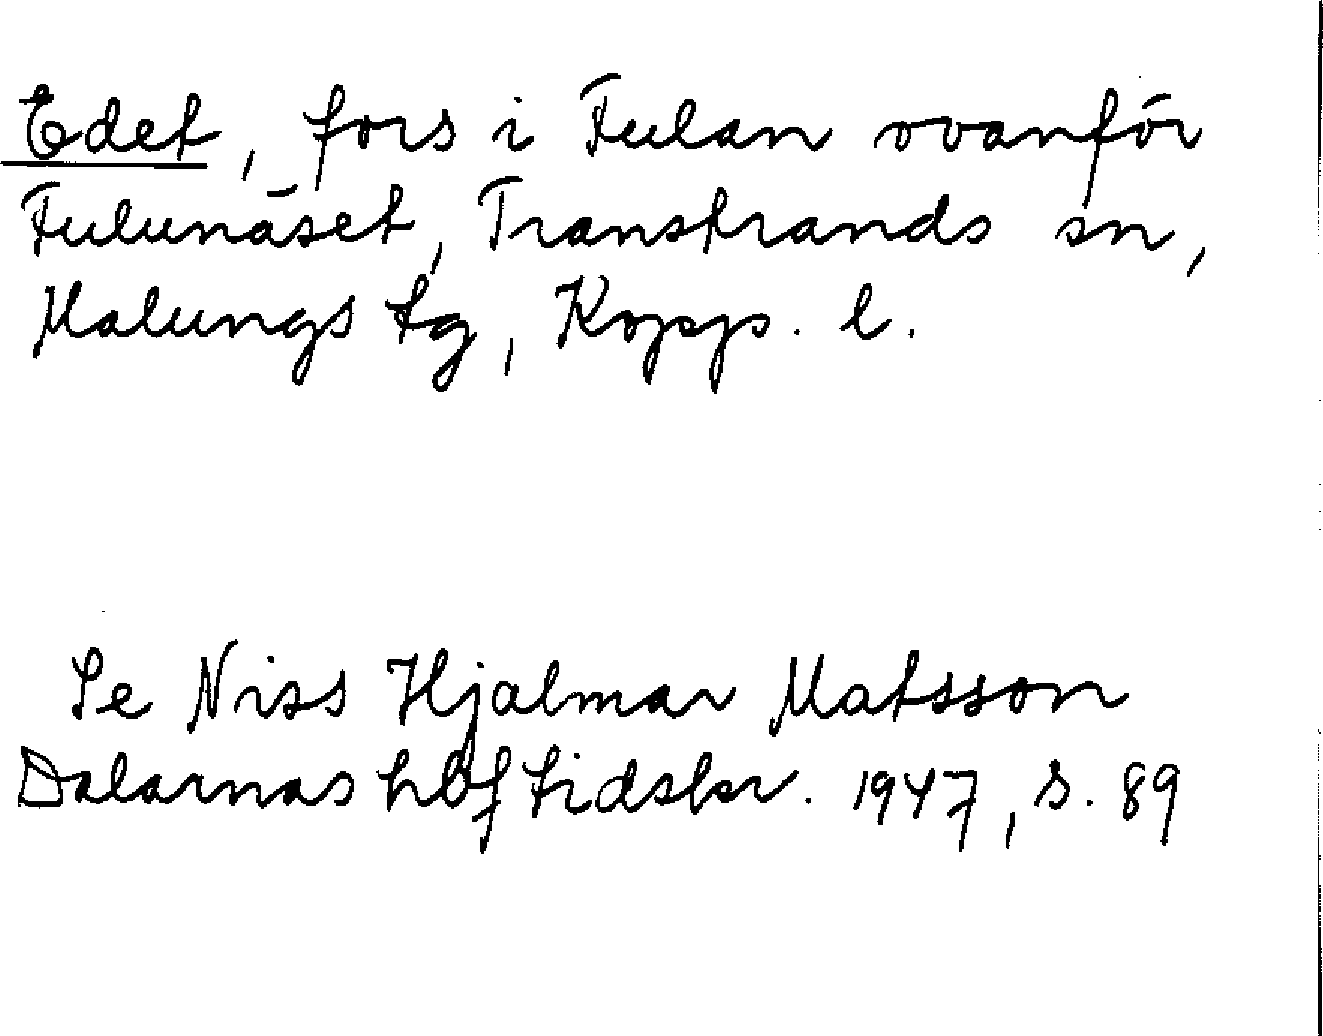 Edet, fors i Fulan ovanför
Fulunäset, Transtrands sn,
Malungs tg, Kopp. l.
Se Niss Hjalmar Matsson
Dalarnas hbf tidskr. 1947, s. 89